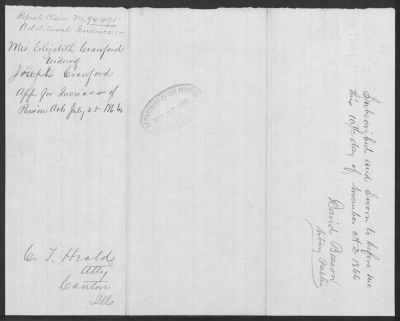 Additional Evidence
Mrs Elizabeth Crawford
Widow
Joseph Crawford
App. for Increase of
Pension Act July 25 1866
C. T. Heald
Atty
Canton
Ills
Subscribed and Sworn to before me
this 10th day of November A.D. 1866
David Beeson
Notary Public